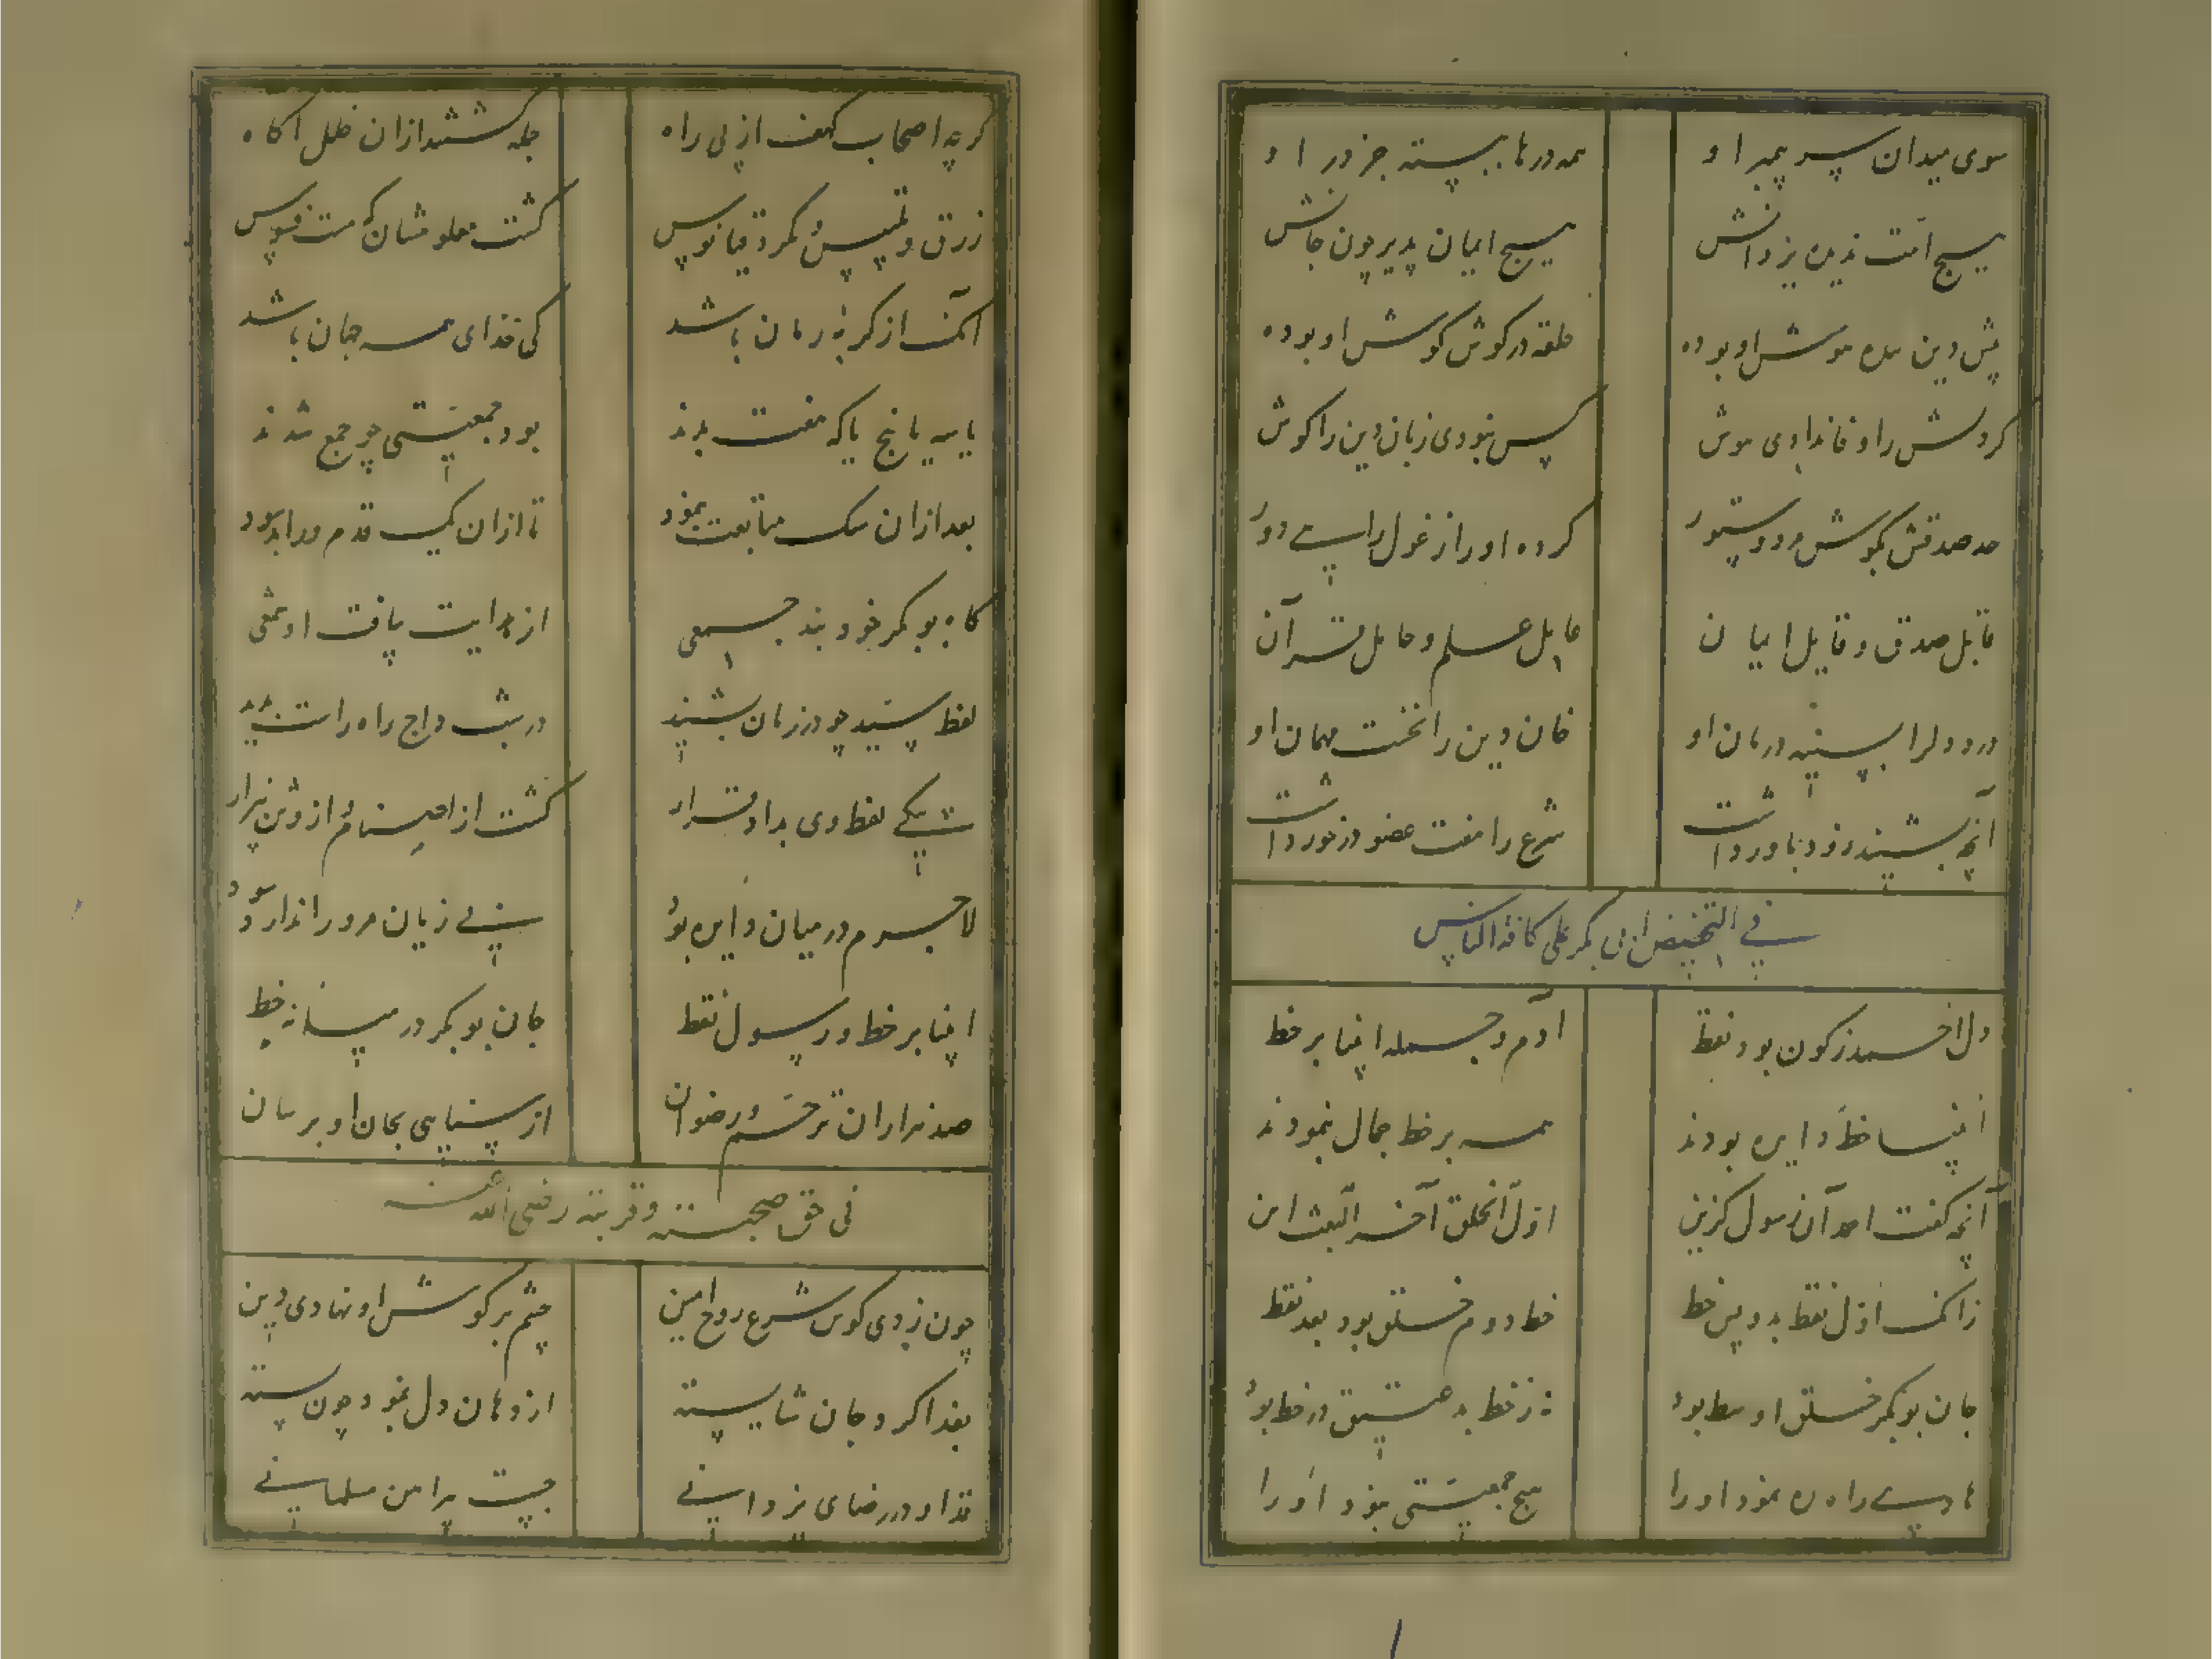 سوی میدان سر پیمبر او همه درها ببسته جز در او
هیچ ایمان پذیر چون جانش
پیش دین بوده حلقه در گوش گوش او بوده
کردش را وفا ندادی هوش پس نبودی زبان دین را گوش
کرده او را ز غول راهی دور
قابل صدق و قایل ایمان عامل علم و حامل قرآن
درد دل را بسینه درمان او خان دین را نخست مهمان او
آنچه بشنید زود باور داشت شرع را هفت عضو در خور داشت
فی التخصیص ابی بکر علی کافة الناس
دل احمد ز کون بود نقط آدم و جمله انبیا بر خط
انبیا خط دایره بودند همه بر خط جمال بنمودند
آنچه گفت احمد آن رسول گزین اول الخلق آخر البعث این
زانک اول نقط بد و پس خط خط دوم خلق بود بعد نقط
جان بوبکر خلق او سط بود نه ز خط بد عتیق در خط بود
هادی راه ره نمود او را هیچ جمعیتی نبود او را
گرچه اصحاب کهف از پی راه جمله گشتند ازان خلل آگاه
زرق و تلبیس و مکر دقیانوس گشت معلومشان که هست فسوس
آنک از گربه رمان باشد کی خدای همه جهان باشد
یا سه یا پنج یا که هفت بدند بود جمعیتی چو جمع شدند
بعد ازان سگ متابعت بنمود تا ازان یک قدم
گاه بوبکر خود بند جمعی از هدایت بیافت او شمعی
لفظ سید چو در زمان بشنید در شب داج راه راست بدید
بیکی لفظ وی بداد قرار گشت از اصنام و از وثن بیزار
لاجرم در میان دایره بود بی زیان مرورا ندارد سود
انبیا بر خط و رسول نقط جان بوبکر در میانه خط
صد هزاران ترحم و رضوان از سنایی بجان او برسان
فی حق صحبته و قربته رضی الله عنه
چون زدی کوس شرع روح امین چشم بر گوش او نهادی دین
بغدا کرد جان شایسته از دهان دل نمود چون پسته
قد او در رضای یزدانی جیب پیراهن مسلمانی